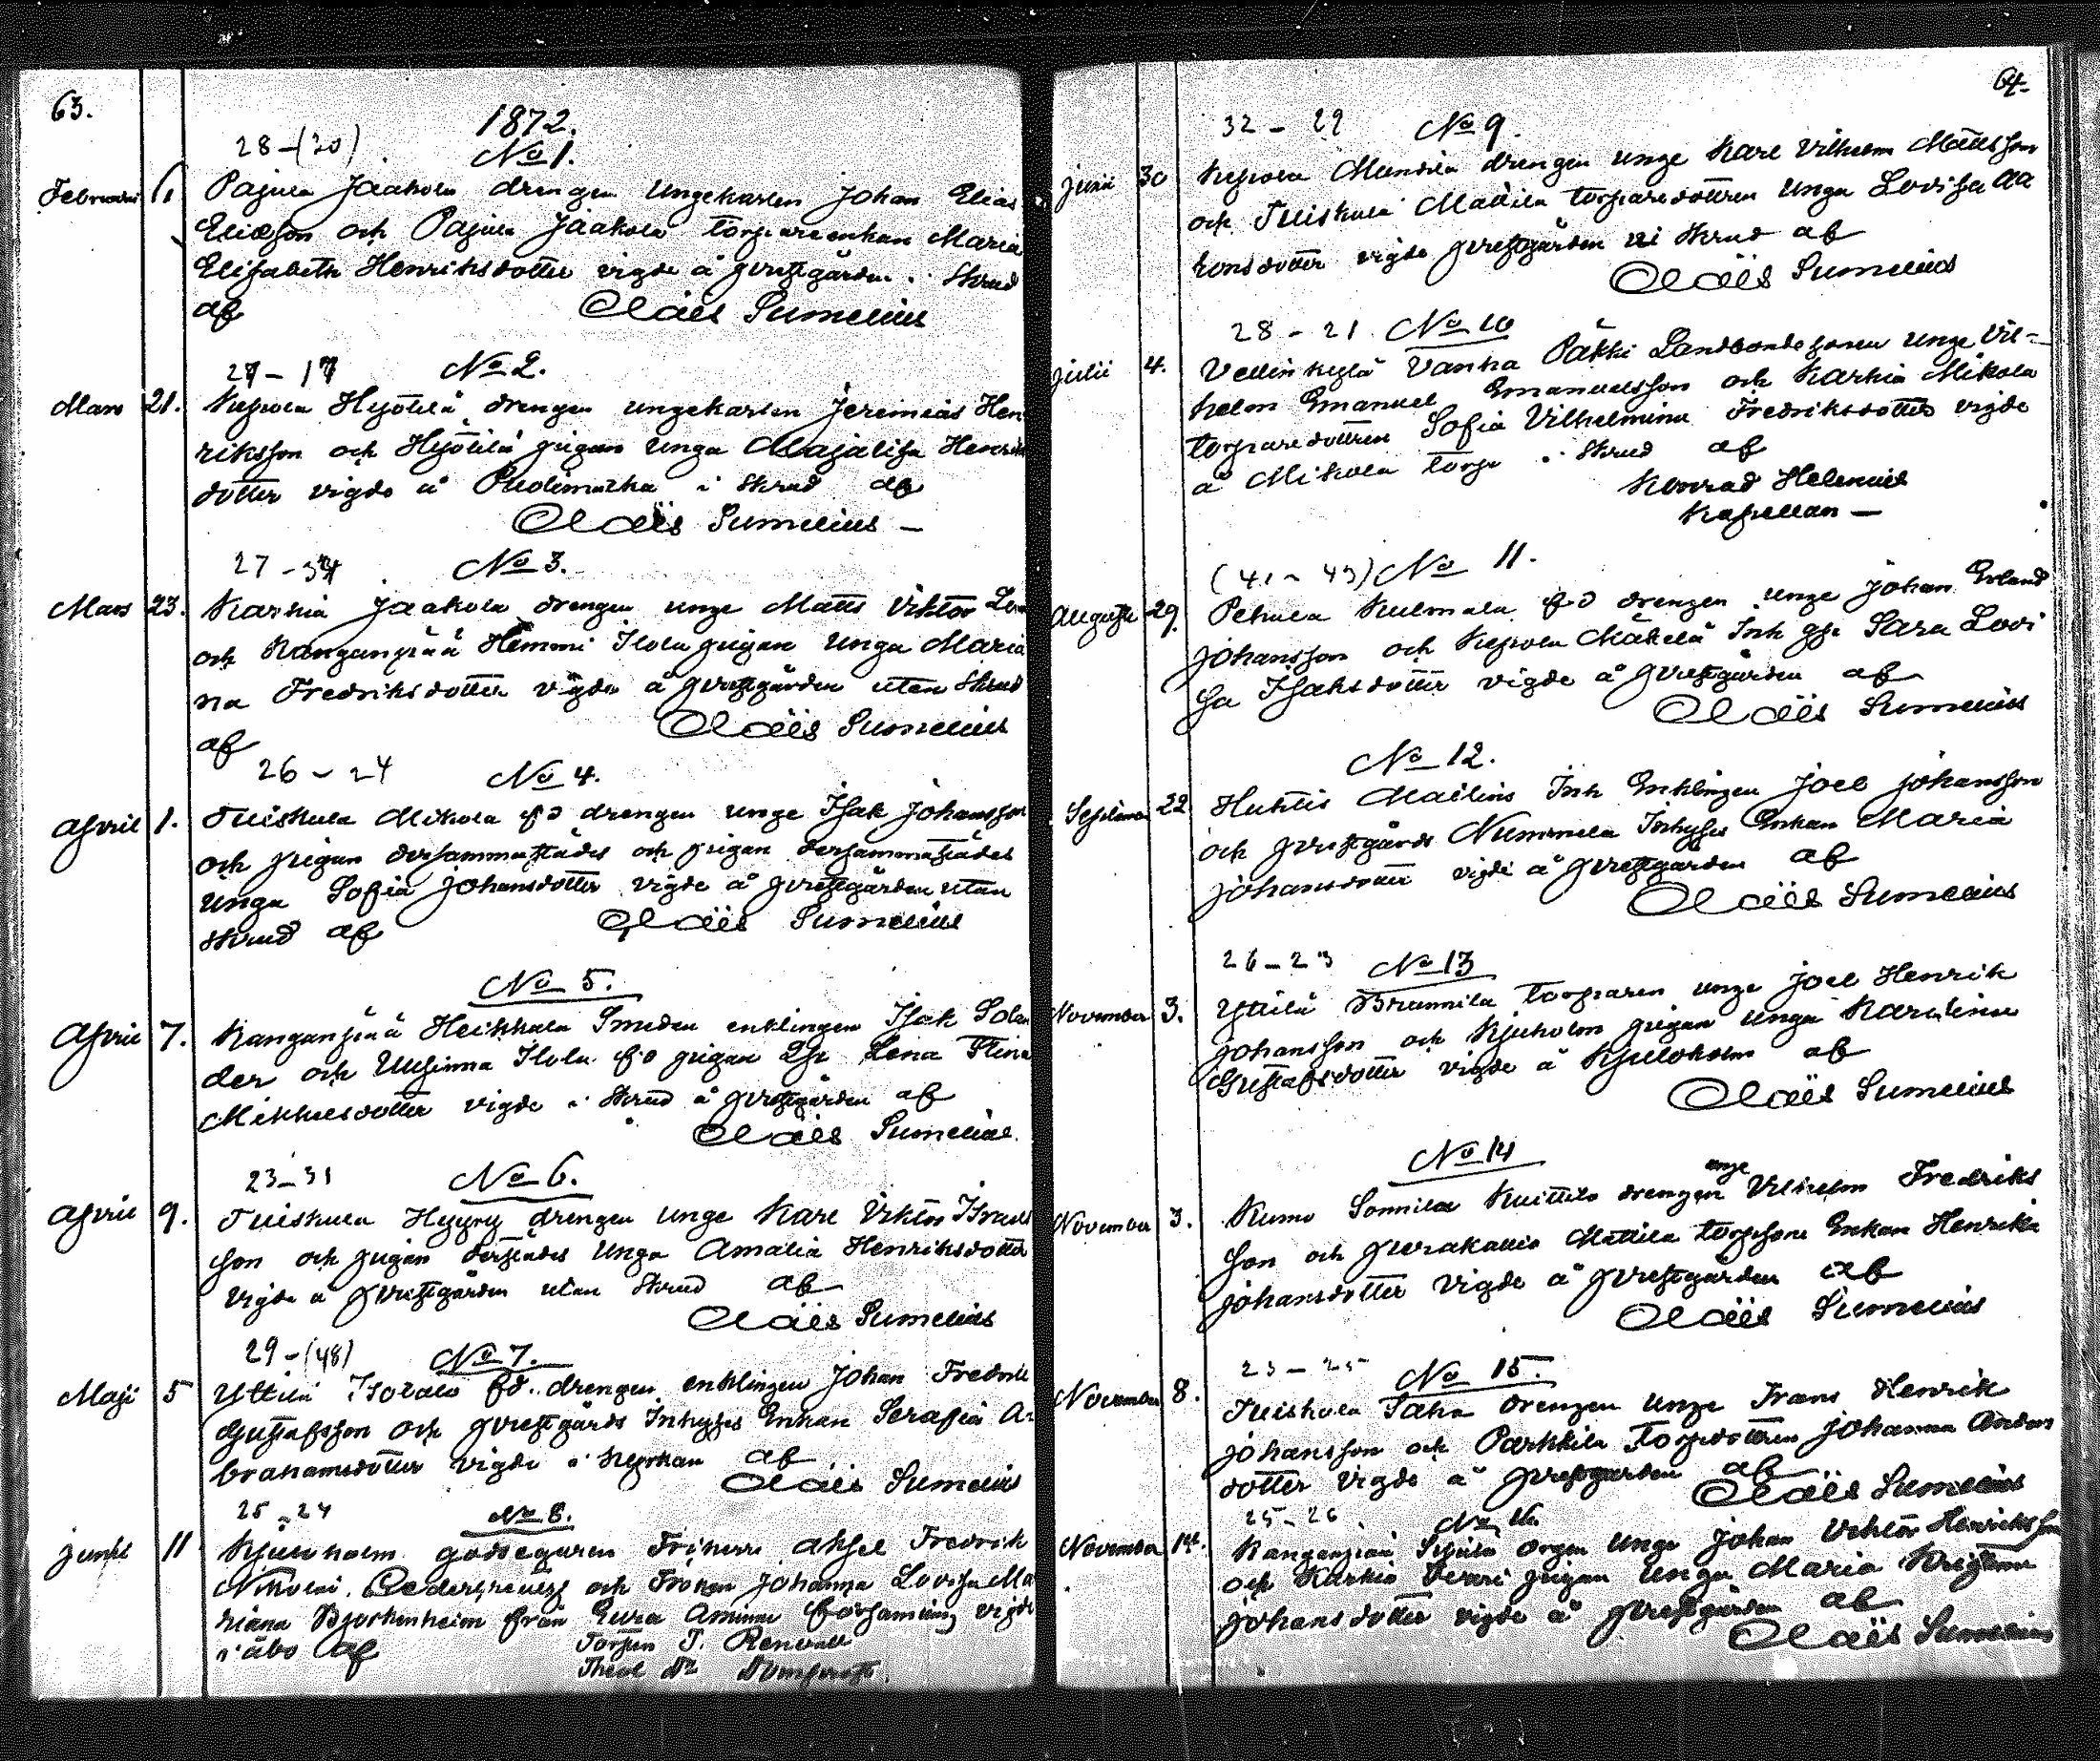 63.
1872.
28-(30)
No 1.
Februari 11 Pajula Jaakola drengen Ungekarlen Johan Elias
Eliasson och Pajula Jaakola torpareenkan Maria
Elisabeth Henriksdotter vigde å prestgården i Skrud
af Claës Sumelius
27-17 No 2.
Mars 21. Kepola Hyötilä drengen ungekarlen Jeremias Hen
riksson och Hyötilä pigan unga Majalisa Henrik
dotter vigde å Puolimatka i Skrud af
Claës Sumelius –
27-34 No 3.
Mars 23. Karhia Jaakola drengen unge Matts Viktor
och Kanganpää Hemmi Ilola pigan unga Maria
na Fredriksdotter vigde å prestgården utan Skrud
af Claës Sumelius
26-24 No 4.
April 1. Tuiskula Mikola fd drengen unge Isak Johansson
och pigan dersammastädes och pigan dersammastädes
unga Sofia Johansdotter vigde å prestgården utan
Skrud af Claës Sumelius
No 5.
April 7. Kanganpää Heikkala Smeden enklingen Isak Solan
der och Uusinna Ilola fd pigan Lena Stina
Mikkelsdotter vigde i Skrud å prestgården af
Claës Sumelius.
23-31 No 6.
April 9. Tuiskula Hyyry drengen unge Karl Viktor Israels
son och pigan derstädes Unga Amalia Henriksdotter
vigde å prestgården utan Skrud af
Claës Sumelius
29-(48) No 7.
Maji 5 Yttilä Isotalo fd. drengen enklingen Johan Fredrik
Gustafsson och prestgårds Inhyses Enkan Serafia A-
brahamsdotter vigde i kyrkan af
Claës Sumelius
25-24 No 8.
11 Kjuloholm godsegaren Friherre Aksel Fredrik
Nikolai Cedercreutz och Fröken Johanna Lovisa Ma
riana Björkenheim från Eura Åminne församling vigde
i Åbo af Torsten T. Renvall
Theol Dr Domprost.
64
32-29 No 9.
Junii 30 Kepola Mandila drengen unge Karl Vilhelm Mattsson
och Tuiskula Mattila torparedottren unga Lovisa Aa
ronsdotter vigde prestgården i Skrud af
Claës Sumelius
28-21. No 10
Julii 4. Vellinkylä Vanha Päkki Landbondesonen unge Vil-
helm Emanuel Emanuelsson och Karhia Mikola
torparedottren Sofia Vilhelmina Fredriksdotter vigde
å Mikola torp i Skrud af
Konrad Helenius
Kapellan –
(41-43) No 11.
Augusti 29. Pehula Kulmala fd drengen unge Johan Erland
Johansson och Kepola Mäkelä Inh Sara Lovi
sa Isaksdotter vigde å prestgården af
Claës Sumelius
No 12.
September 22 Huhtis Mattlins Inh Enklingen Joel Johansson
och prestgårds Nummela Inhyses Enkan Maria
Johansdotter vigde å prestgården af
Claës Sumelius
26-23 No 13
November 3. Yttilä Brunnila torparen unge Joel Henrik
Johansson och Kjuloholm pigan unga Karolina
Gustafsdotter vigde å Kjuloholm af
Claës Sumelius
No 14
November 3. Kumo Sonnila Kuittilo drengen unge Vilhelm Fredriks
son och Purakallio Mattila torpsons Enkan Henrika
Johansdotter vigde å prestgården af
Claës Sumelius
23-25 No 15.
November 8. Tuiskula Saha drengen unge Frans Henrik
Johansson och Parkkila Torpdottren Johanna Anders
dotter vigde å prestgården af
Claës Sumelius
25-26 No 16.
November 14. Kanganpää Seppälä drgen unge Johan Viktor Henriksson
och Karhia Pirri pigan unga Maria Kristina
Johansdotter vigde å prestgården af
Claës Sumelius